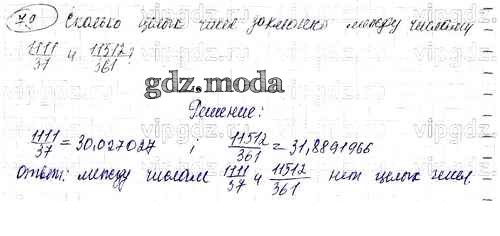 79 Сколько целых чисел заключено между числами
1111/37 и 11512/361?
gdz.moda
Решение:
1111/37 = 30,027027 ; 11512/361 = 31,8891966
Ответ: между числами 1111/37 и 11512/361 нет целых чисел.